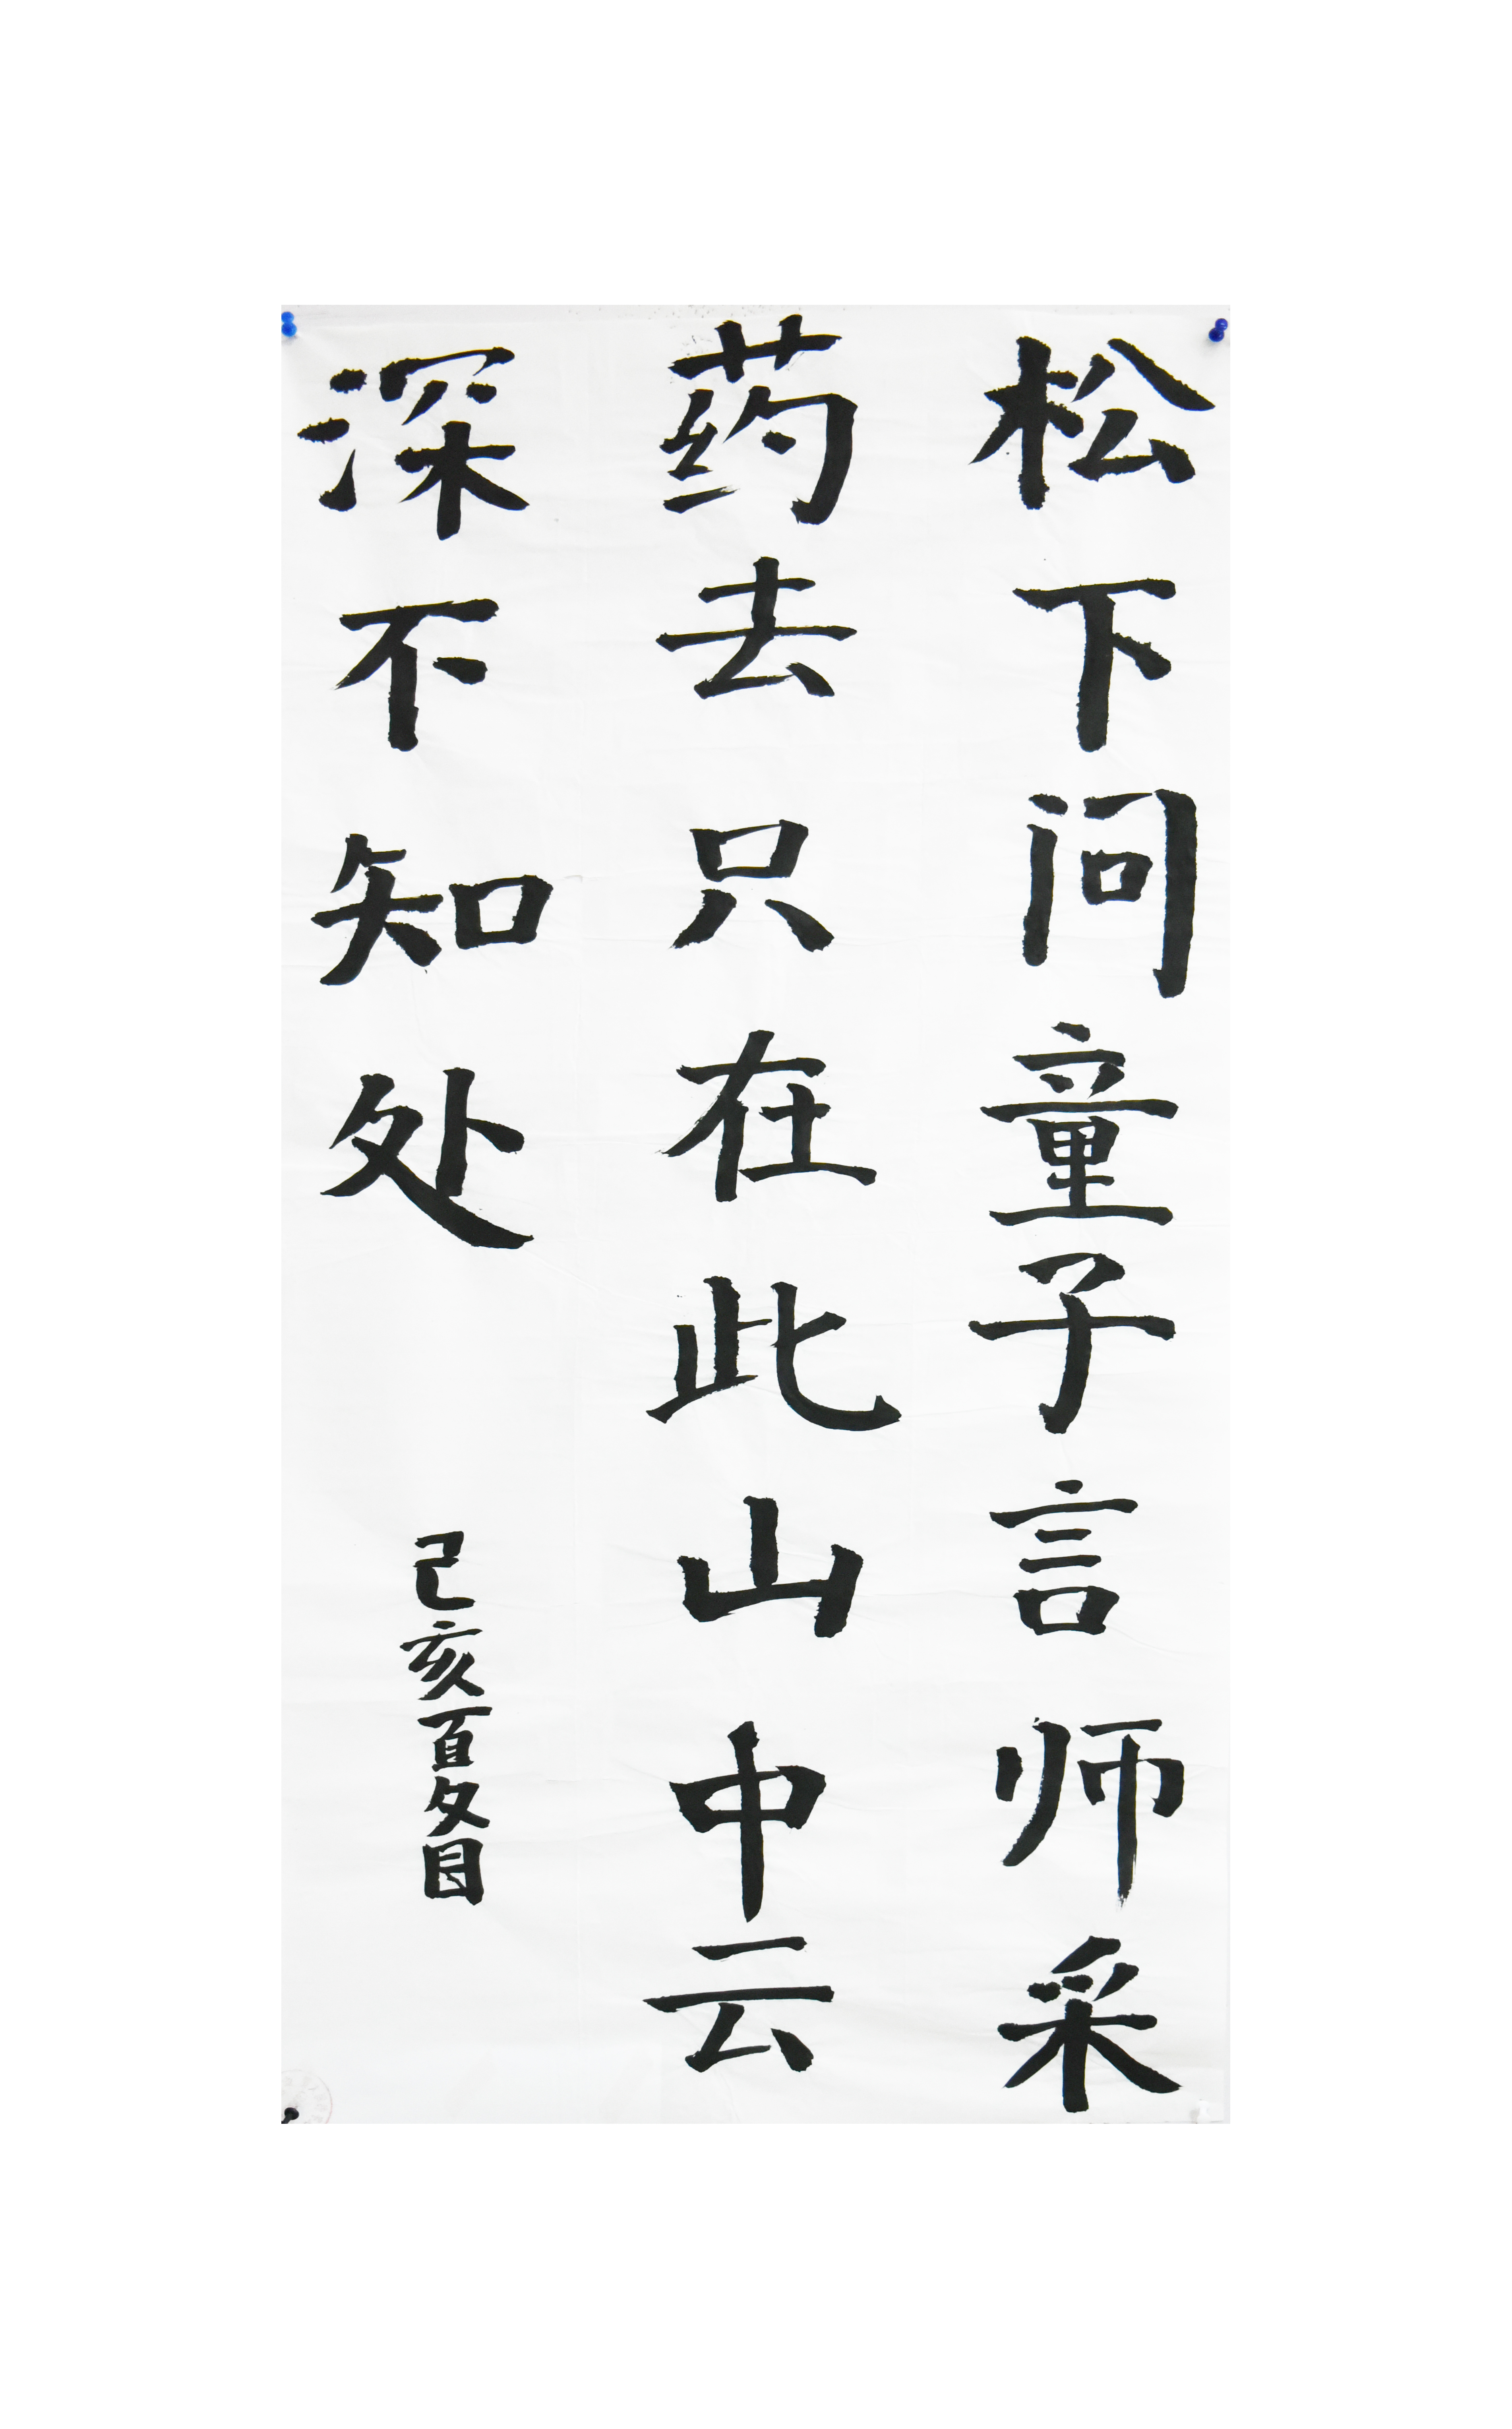 松下问童子言师采
药去只在此山中云
深不知处
己亥夏